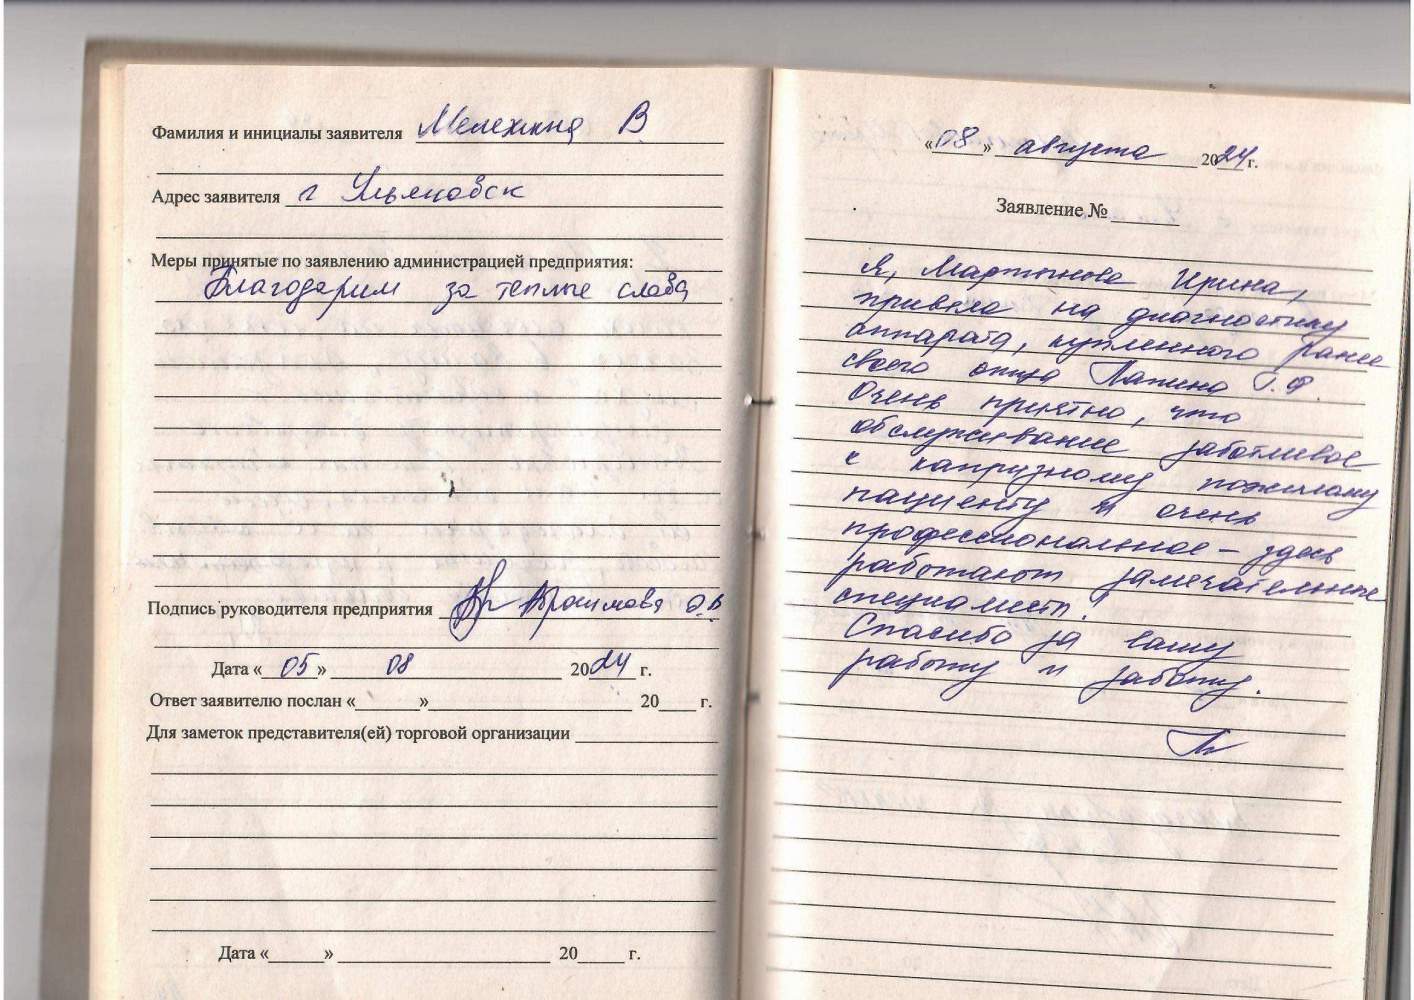 Фамилия и инициалы заявителя Мелехина В
Адрес заявителя г Ульяновск
Меры принятые по заявлению администрацией предприятия:
Благодарим за теплые слова
Подпись руководителя предприятия Абрасимова О.В
Дата «05» 08 2024 г.
Ответ заявителю послан «» 20 г.
Для заметок представителя(ей) торговой организации
Дата «» 20 г.
«08» августа 2024 г.
Заявление №
Я, Мартынова Ирина,
привела на диагностику
аппарата, купленного ранее
своего отца Лапина Г.Ф.
Очень приятно, что
обслуживание заботливое
к капризному пожилому
пациенту и очень
профессиональное – здесь
работают замечательные
специалисты!
Спасибо за вашу
работу и заботу.